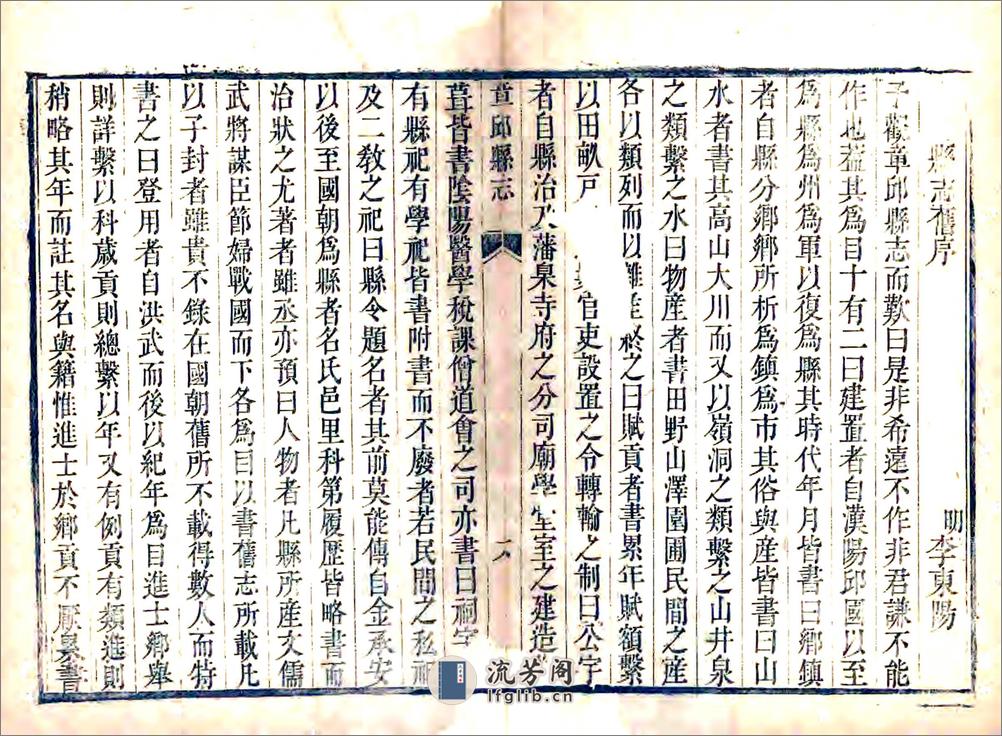 縣志舊序
明 李東陽
予觀章邱縣志而歎曰是非希遠不作非君謙不能
作也蓋其為目十有二曰建置者自漢陽邱國以至
為縣為州為軍以復為縣其時代年月皆書曰鄉鎮
者自縣分鄉鄉所析爲鎮爲市其俗與産皆書曰山
水者書其高山大川而又以嶺洞之類繫之山井泉
之類繫之水曰物産者書田野山澤園圃民間之産
各以類列而以雜産終之曰賦貢者書累年賦額繫
以田畝戸官吏設置之令轉輸之制曰公宇
者自縣治及藩臬寺府之分司廟學堂室之建造
章邱縣志
一
六
葺皆書陰陽醫學稅課僧道會之司亦書曰祠宇
有縣祀有學祀皆書附書而不廢者若民間之私祠
及二敎之祀曰縣令題名者其前莫能傳自金承安
以後至國朝爲縣者名氏邑里科第履歷皆略書而
治狀之尤著者雖丞亦預曰人物者凡縣所産文儒
武將謀臣節婦戰國而下各爲目以書舊志所載凡
以子封者雖貴不錄在國朝舊所不載得數人而特
書之曰登用者自洪武而後以紀年爲目進士鄉舉
則詳繫以科歲貢則總繫以年又有例貢有類進則
稍略其年而註其名與籍惟進士於鄉貢不厭書
流芳阁
lfglib.cn